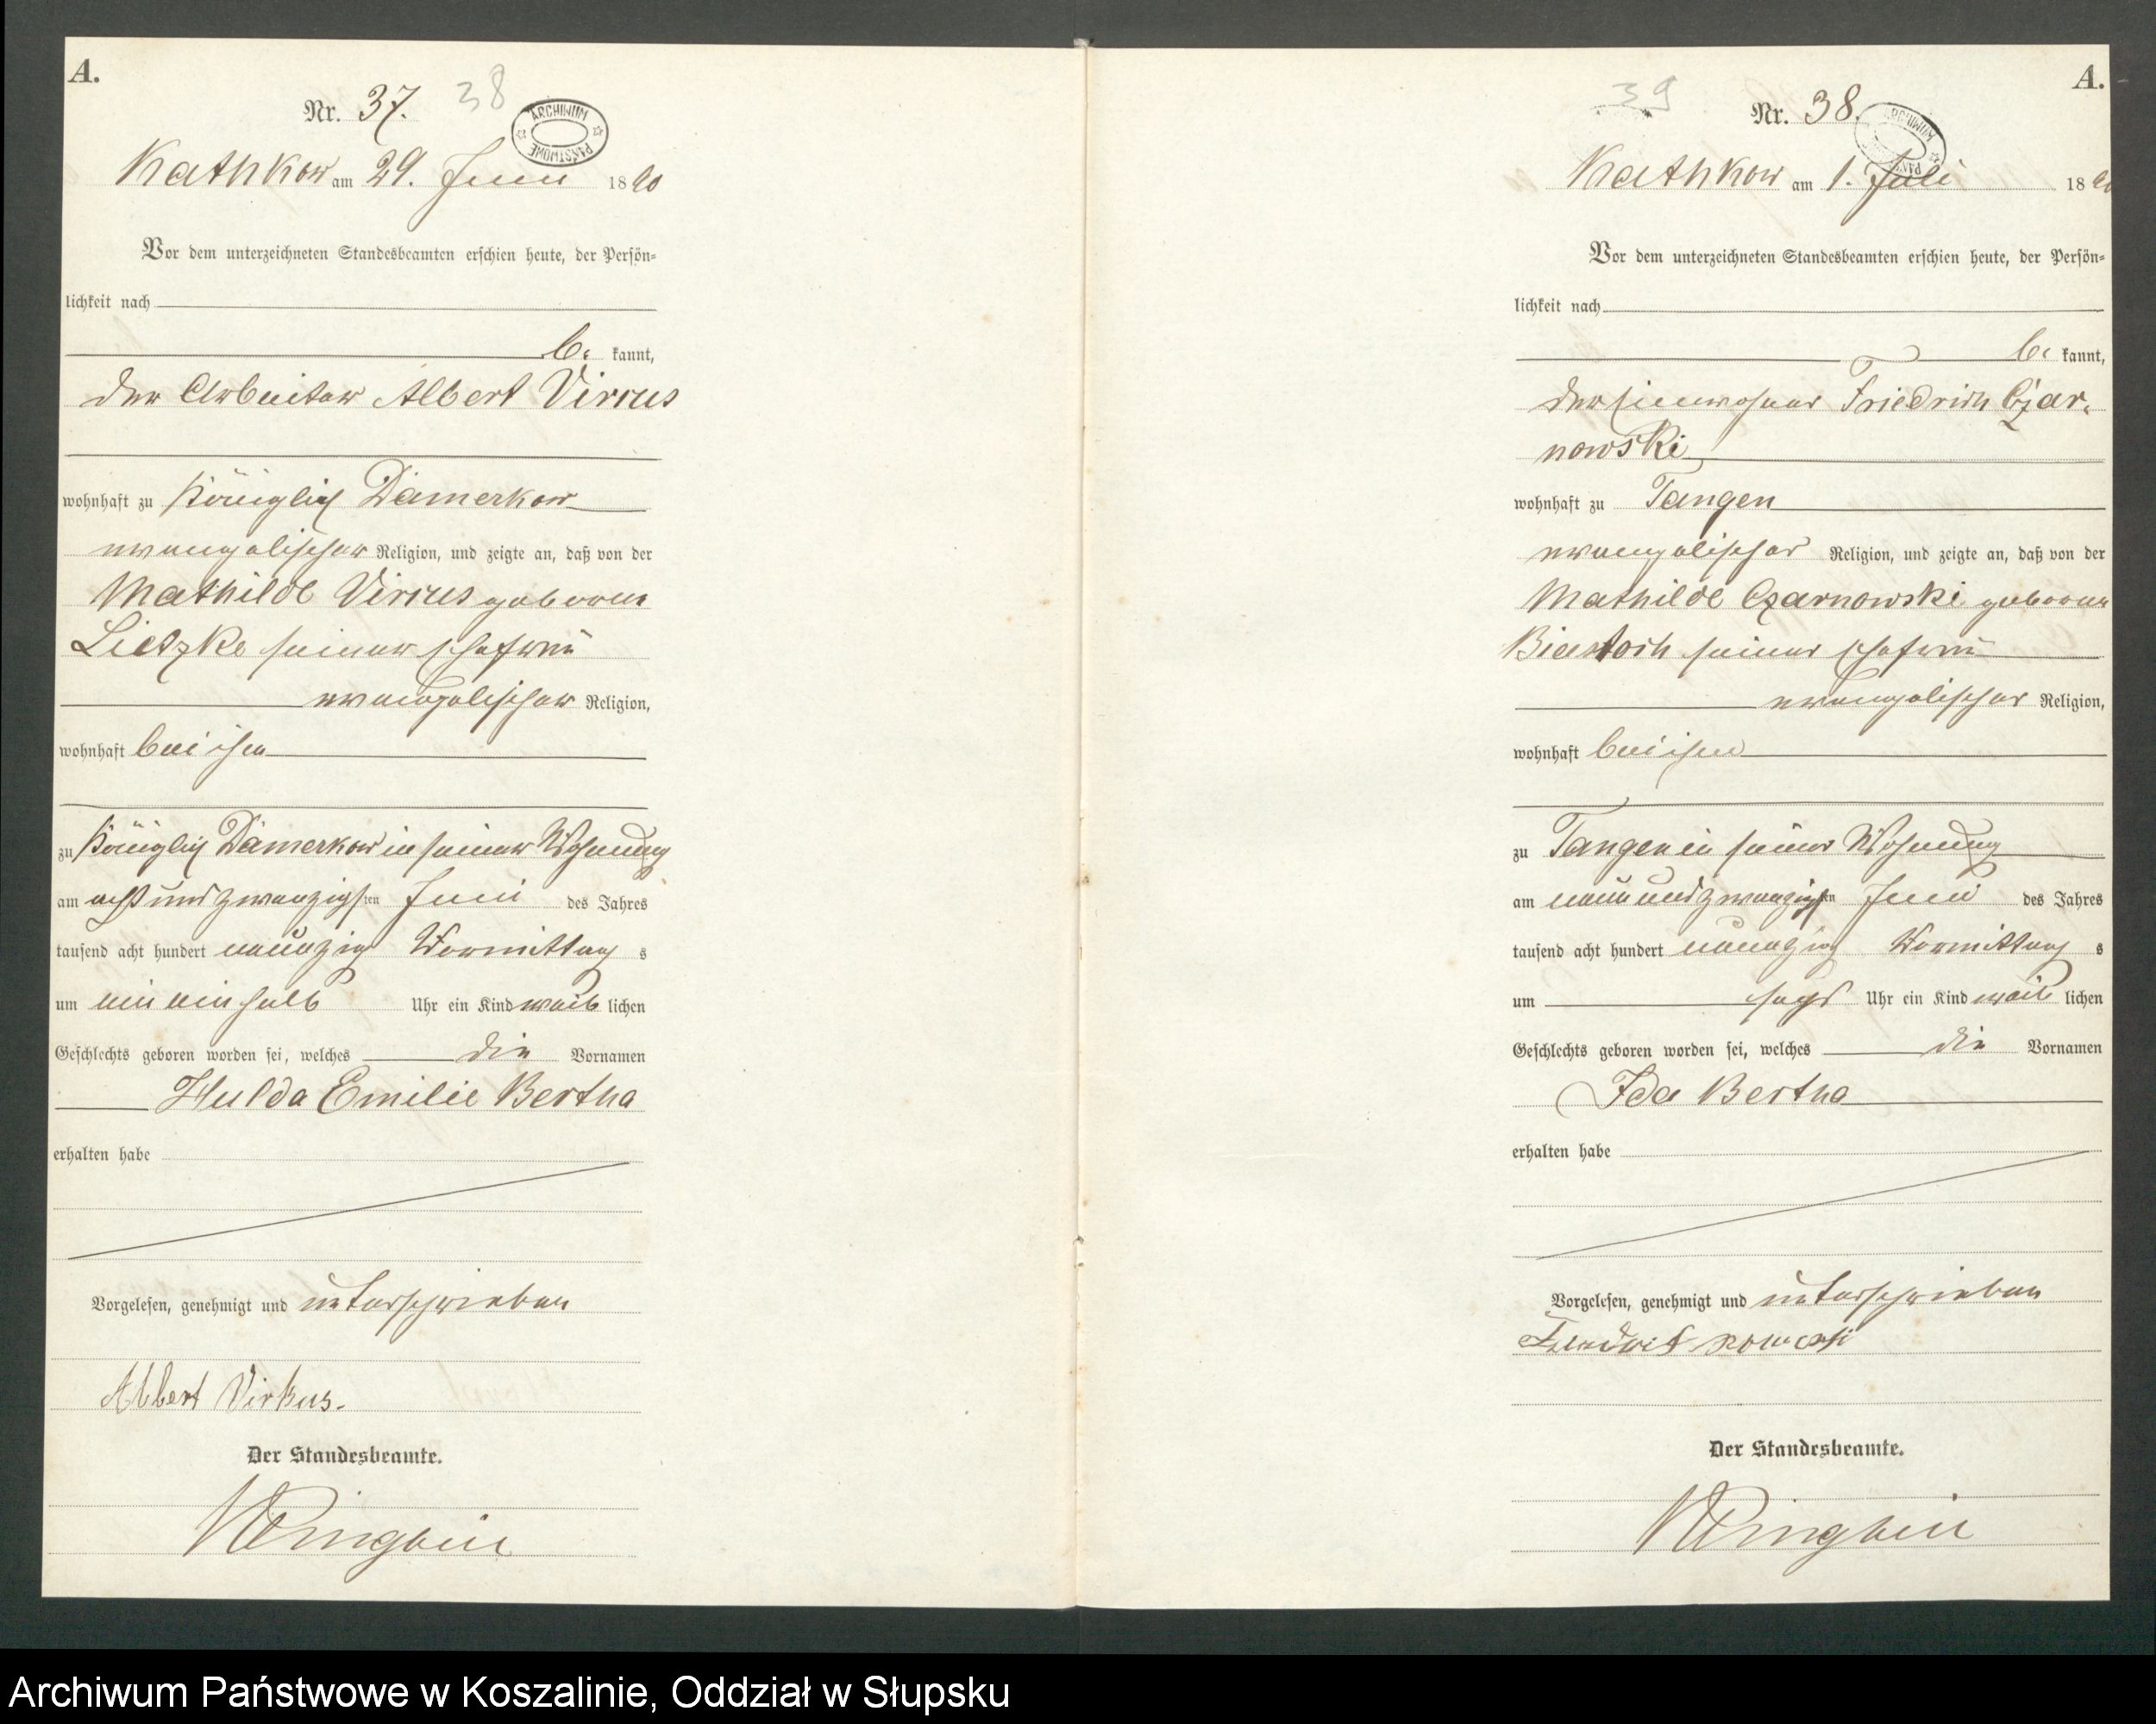 A.
Nr. 37. 38
ARCHIWUM PAŃSTWOWE
Kathkow am 29. Juni 1890
Vor dem unterzeichneten Standesbeamten erschien heute, der Persön-
lichkeit nach
be kannt,
der Arbeiter Albert Vircus
wohnhaft zu Königlich Damerkow
evangelischer Religion, und zeigte an, daß von der
Mathilde Vircus geborene
Lietzke seiner Ehefrau
evangelischer Religion,
wohnhaft bei ihm
zu Königlich Damerkow in seiner Wohnung
am acht und zwanzigsten Juni des Jahres
tausend acht hundert neunzig Vormittag s
um ein einhalb Uhr ein Kind weib lichen
Geschlechts geboren worden sei, welches die Vornamen
Hulda Emilie Bertha
erhalten habe
Vorgelesen, genehmigt und unterschrieben
Albert Virkus.
Der Standesbeamte.
A.
39 Nr. 38.
ARCHIWUM PAŃ
Kathkow am 1. Juli 1890
Vor dem unterzeichneten Standesbeamten erschien heute, der Persön-
lichkeit nach
be kannt,
der Einwohner Friedrich Czar-
nowski
wohnhaft zu Tangen
evangelischer Religion, und zeigte an, daß von der
Mathilde Czarnowski geborene
Biastoch seiner Ehefrau
evangelischer Religion,
wohnhaft bei ihm
zu Tangen in seiner Wohnung
am neun und zwanzigsten Juni des Jahres
tausend acht hundert neunzig Vormittag s
um sechs Uhr ein Kind weib lichen
Geschlechts geboren worden sei, welches die Vornamen
Ida Bertha
erhalten habe
Vorgelesen, genehmigt und unterschrieben
Der Standesbeamte.
Archiwum Państwowe w Koszalinie, Oddział w Słupsku